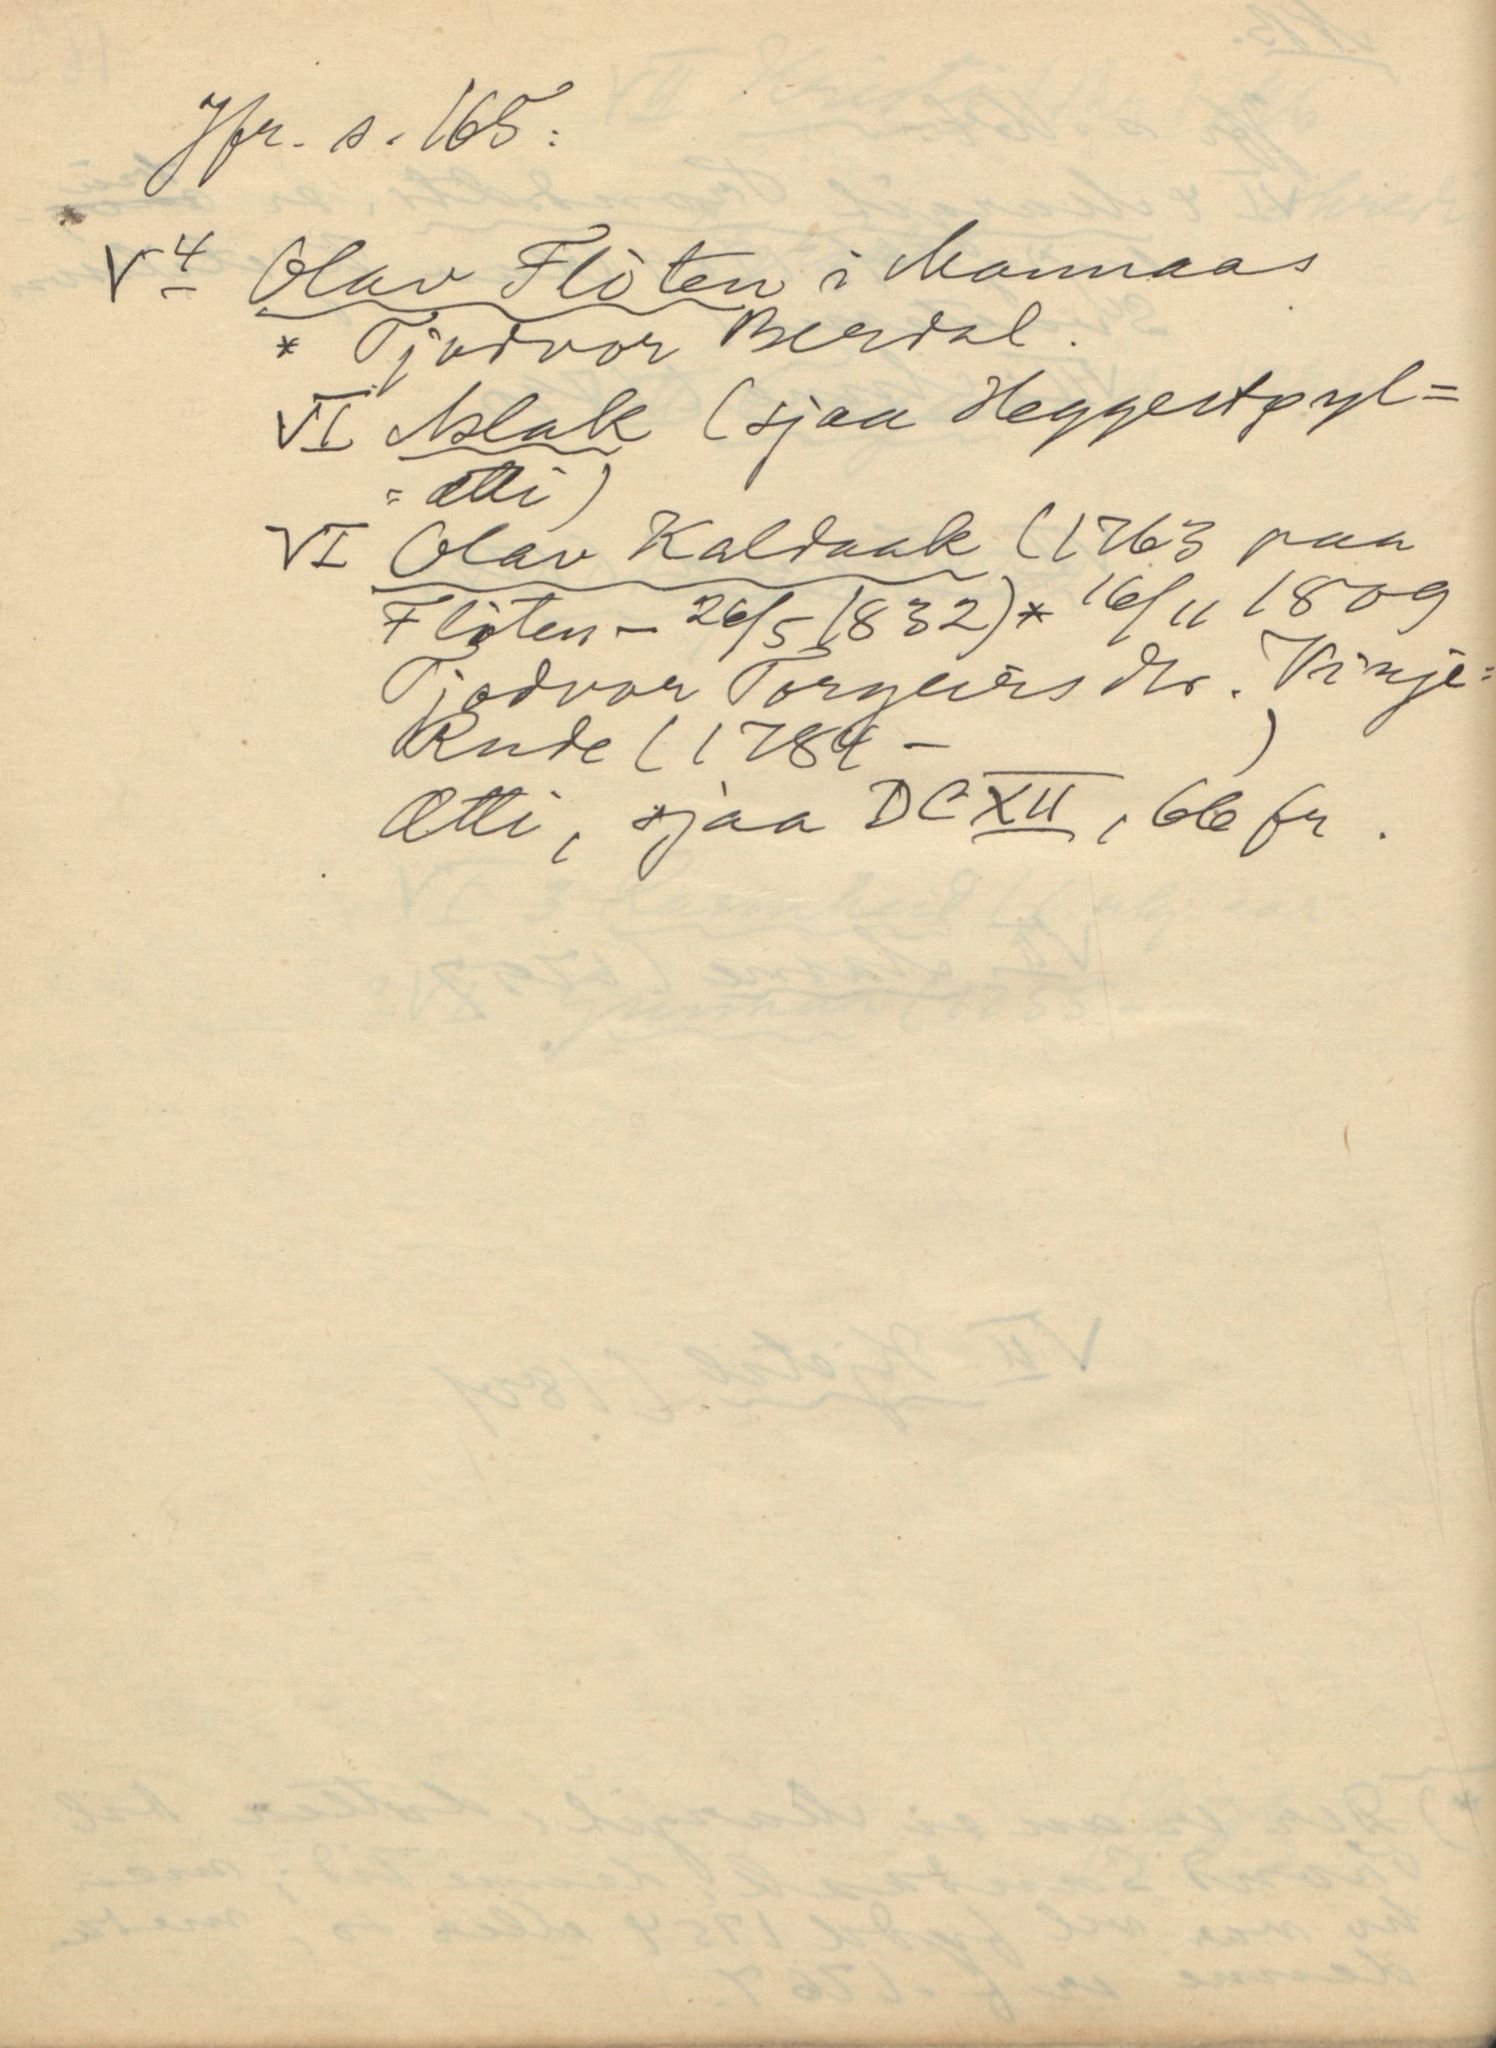 Jfr. s. 165:
V 4 Olav Flöten i Mannaas
* Tjodvor Berdal.
VI Aslak (sjaa Heggestøyl=
=ætti)
VI Olav Kaldaak (1763 paa
Flöten - 26/5 1832) * 16/11 1809
Tjodvor Torgeirs dtr. Vinje=
Rude (1784 - )
Ætti, sjaa DC XII, 66 fr.